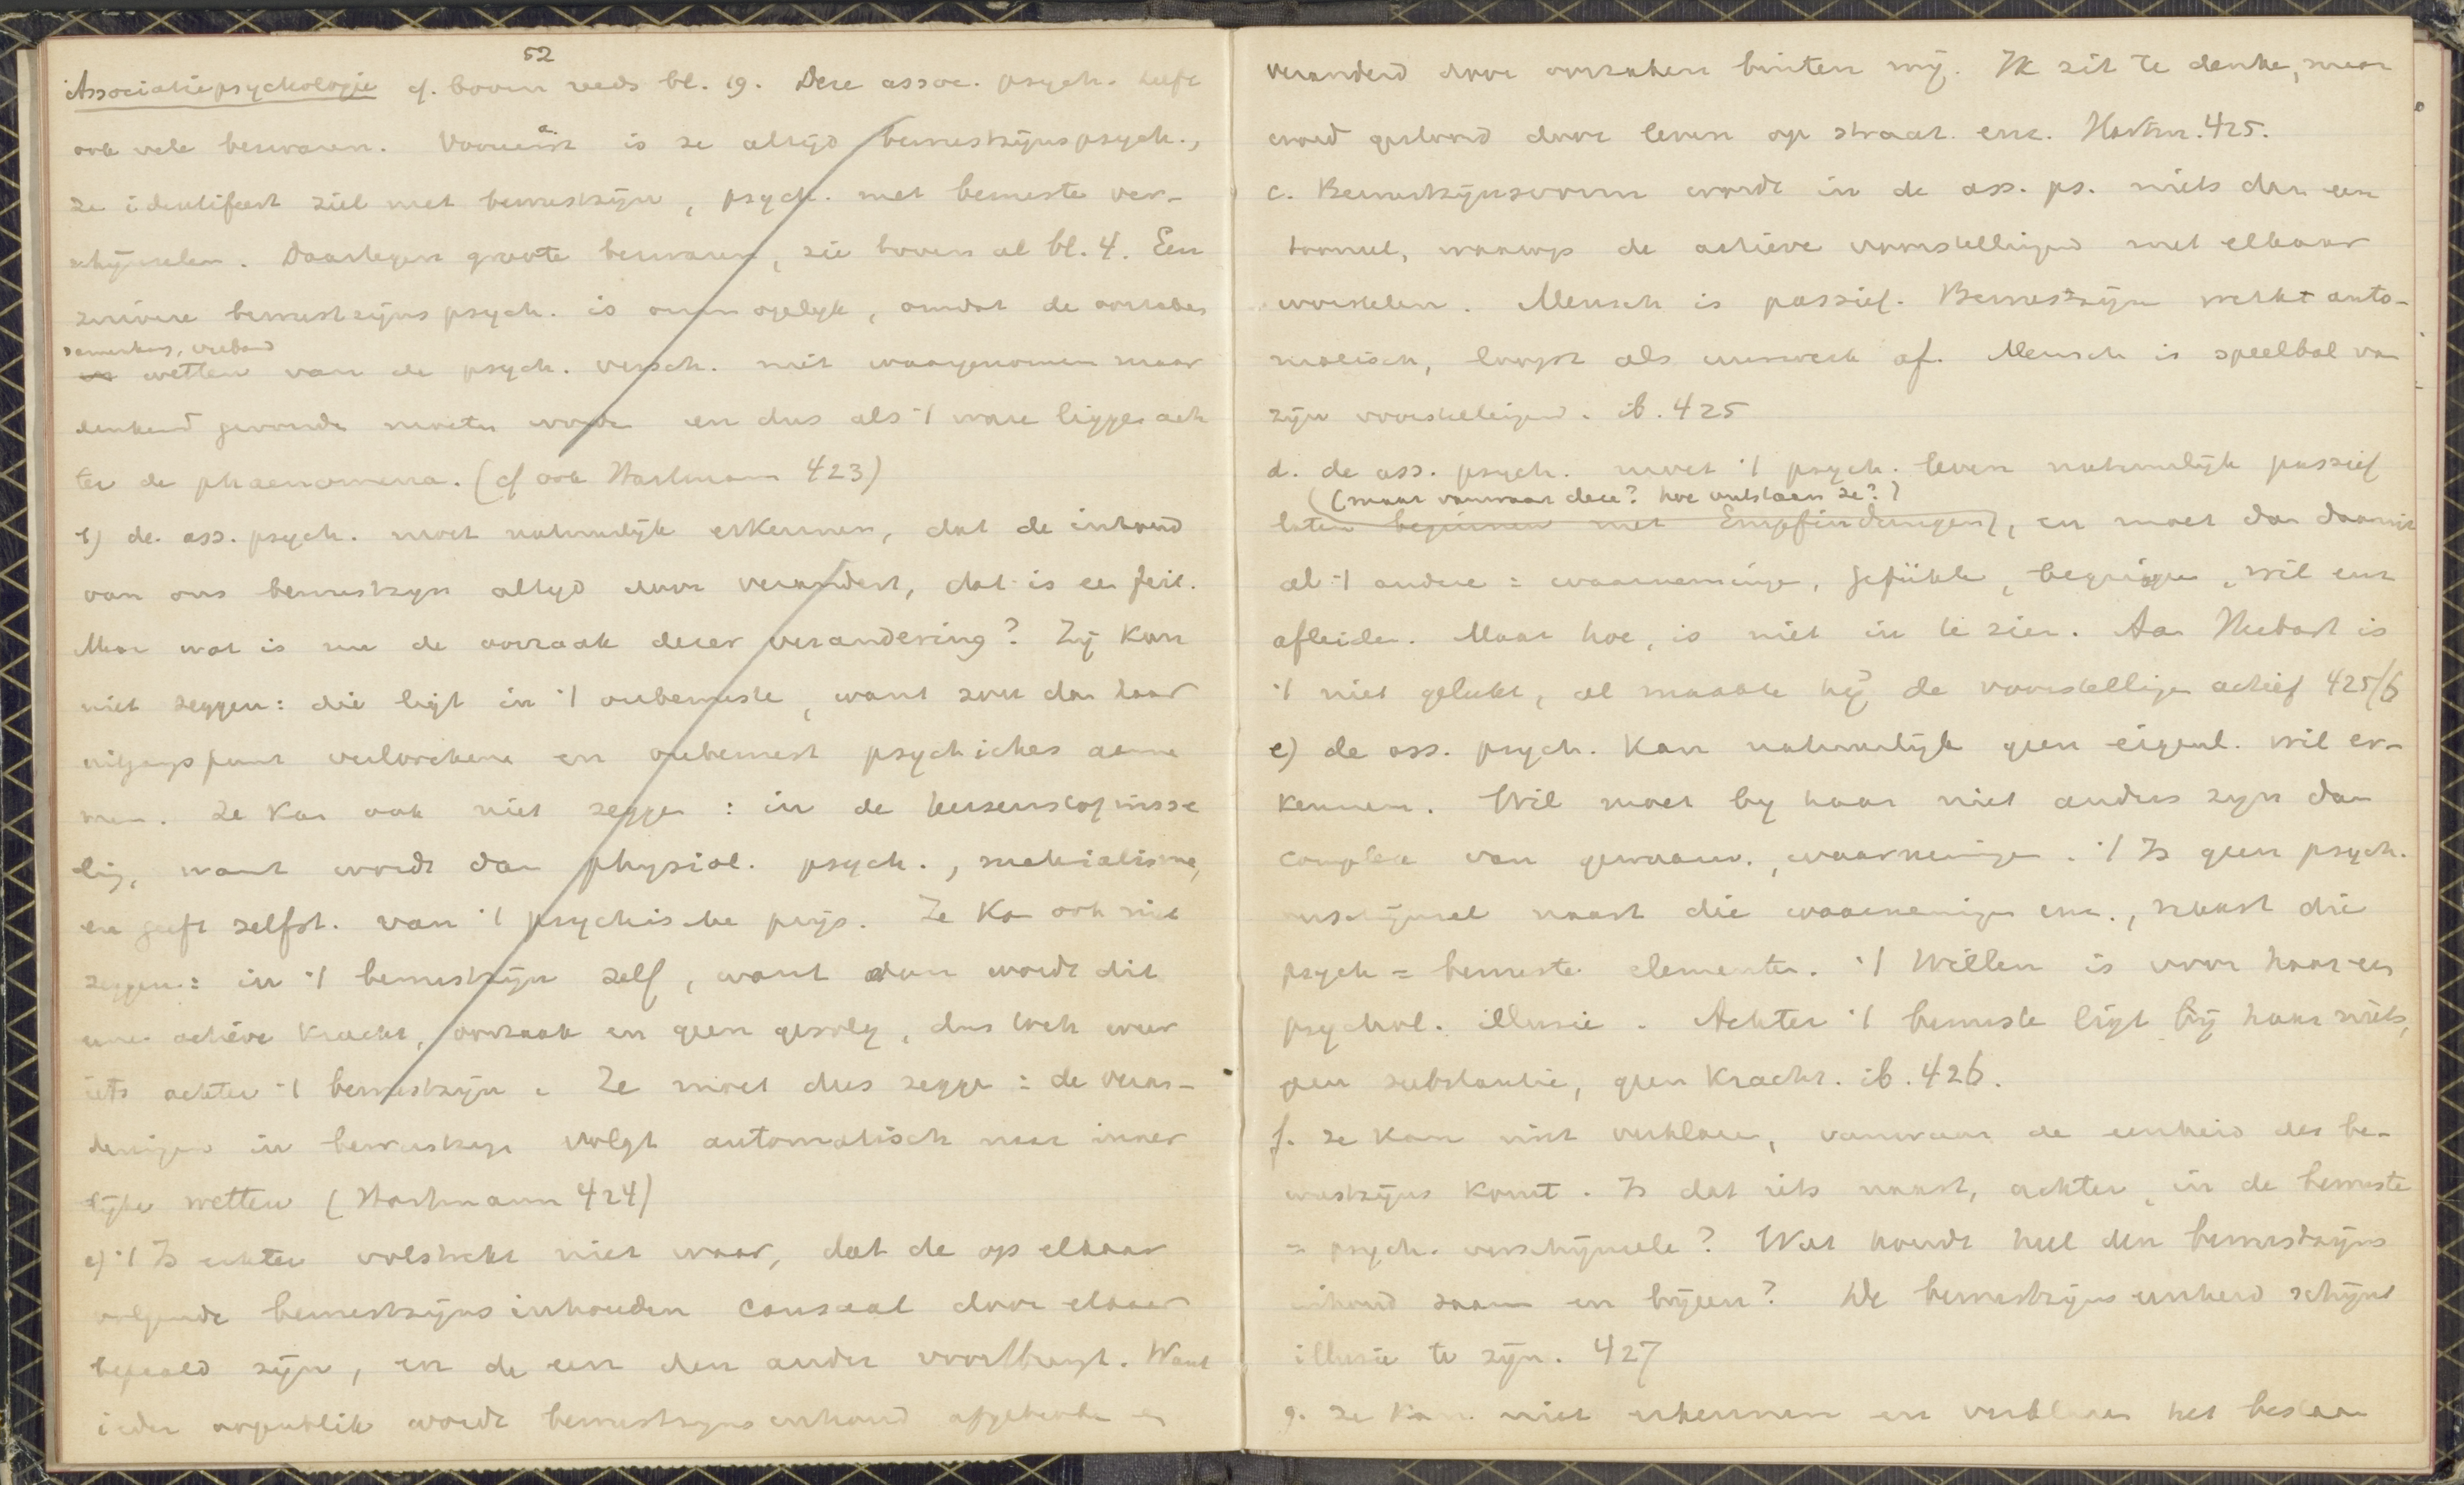 52
Associatiepsychologie cf. boven reeds bl. 19. Deze assoc. psych. heeft
ook vele bezwaren. Vooreerst a. is ze altijd bewustzijnspsych.,
ze identifeert ziel met bewustzijn, psych. met bewuste ver-
schijnselen. Daartegen groote bezwaren, zie boven al bl. 4. Een
zuivere bewustzijnspsych. is onmogelijk, omdat de oorzaken
samenhang, verband
wetten van de psych. versch. niet waargenomen maar
denkend gevonden moeten worden en dus als 't ware liggen ach
ter de phaenomena. (cf ook Hartmann 423)
b) de ass. psych. moet natuurlijk erkennen, dat de inhoud
van ons bewustzijn altijd door verandert, dat is een feit.
Maar wat is nu de oorzaak dezer verandering? Zij kan
niet zeggen: die ligt in 't onbewuste, want zou dan haar
uitgangspunt verlochene en onbewust psychisches aanne
men. Ze kan ook niet zeggen: in de hersens
want wordt dan physiol. psych., materialisme,
en geeft zelfst. van 't psychische prijs. Ze kan ook niet
zeggen: in 't bewustzijn zelf, want dan wordt dit
eene actieve kracht, oorzaak en geen gevolg, dus toch weer
iets achter 't bewustzijn. Ze moet dus zegge: de veran-
deringen in bewustzijn volgt automatisch naar inner
lijke wetten (Hartmann 424)
c) 't Is echter volstrekt niet waar, dat de op elkaar
volgende bewustzijnsinhouden causaal door elkaar
bepaald zijn, en de een den ander voortbrengt. Want
ieder oogenblik wordt bewustzijns inhoud afgebroke en
veranderd door oorzaken buiten mij. Ik zit te denke, maar
word gestoord door leven op straat. enz. Hartm. 425.
c. Bewustzijnsvorm wordt in de ass. ps. niets dan een
tooneel, waarop de actieve voorstellingen met elkaar
worstelen. Mensch is passief. Bewustzijn werkt auto-
matisch, loopt als uurwerk af. Mensch is speelbal van
zijn voorstellingen. ib. 425
d. de ass. psych. moet 't psych. leven natuurlijk passief
(maar vanwaar deze? hoe ontstaan ze?)
laten beginnen met Empfindungen, en moet dan daaruit
al 't andere = waarneminge, gefühle, begrippe, wil enz
afleiden. Maar hoe, is niet in te zien. Aan Herbart is
't niet gelukt, al maakte hij de voorstellige actief 425/6
e) de ass. psych. kan natuurlijk geen eigenl. wil er-
kennen. Wil moet by haar niet anders zijn dan
complex van gewaarw., waarneminge. 't Is geen psych.
verschijnsel naast die waarneminge enz., naast die
psych = bewuste elementen. 't Willen is voor haar een
psychol. illusie. Achter 't bewuste ligt bij haar niets,
geen substantie, geen kracht. ib. 426.
f. ze kan niet verklare, vanwaar de eenheid des be-
wustzijns komt. Is dat iets naast, achter, in de bewuste
= psych. verschijnsele? Wat houdt heel den bewustzijns
inhoud saam en bijeen? De bewustzijns eenheid schijnt
illusie te zijn. 427
g. ze kan niet erkennen en verklaren het bestaan